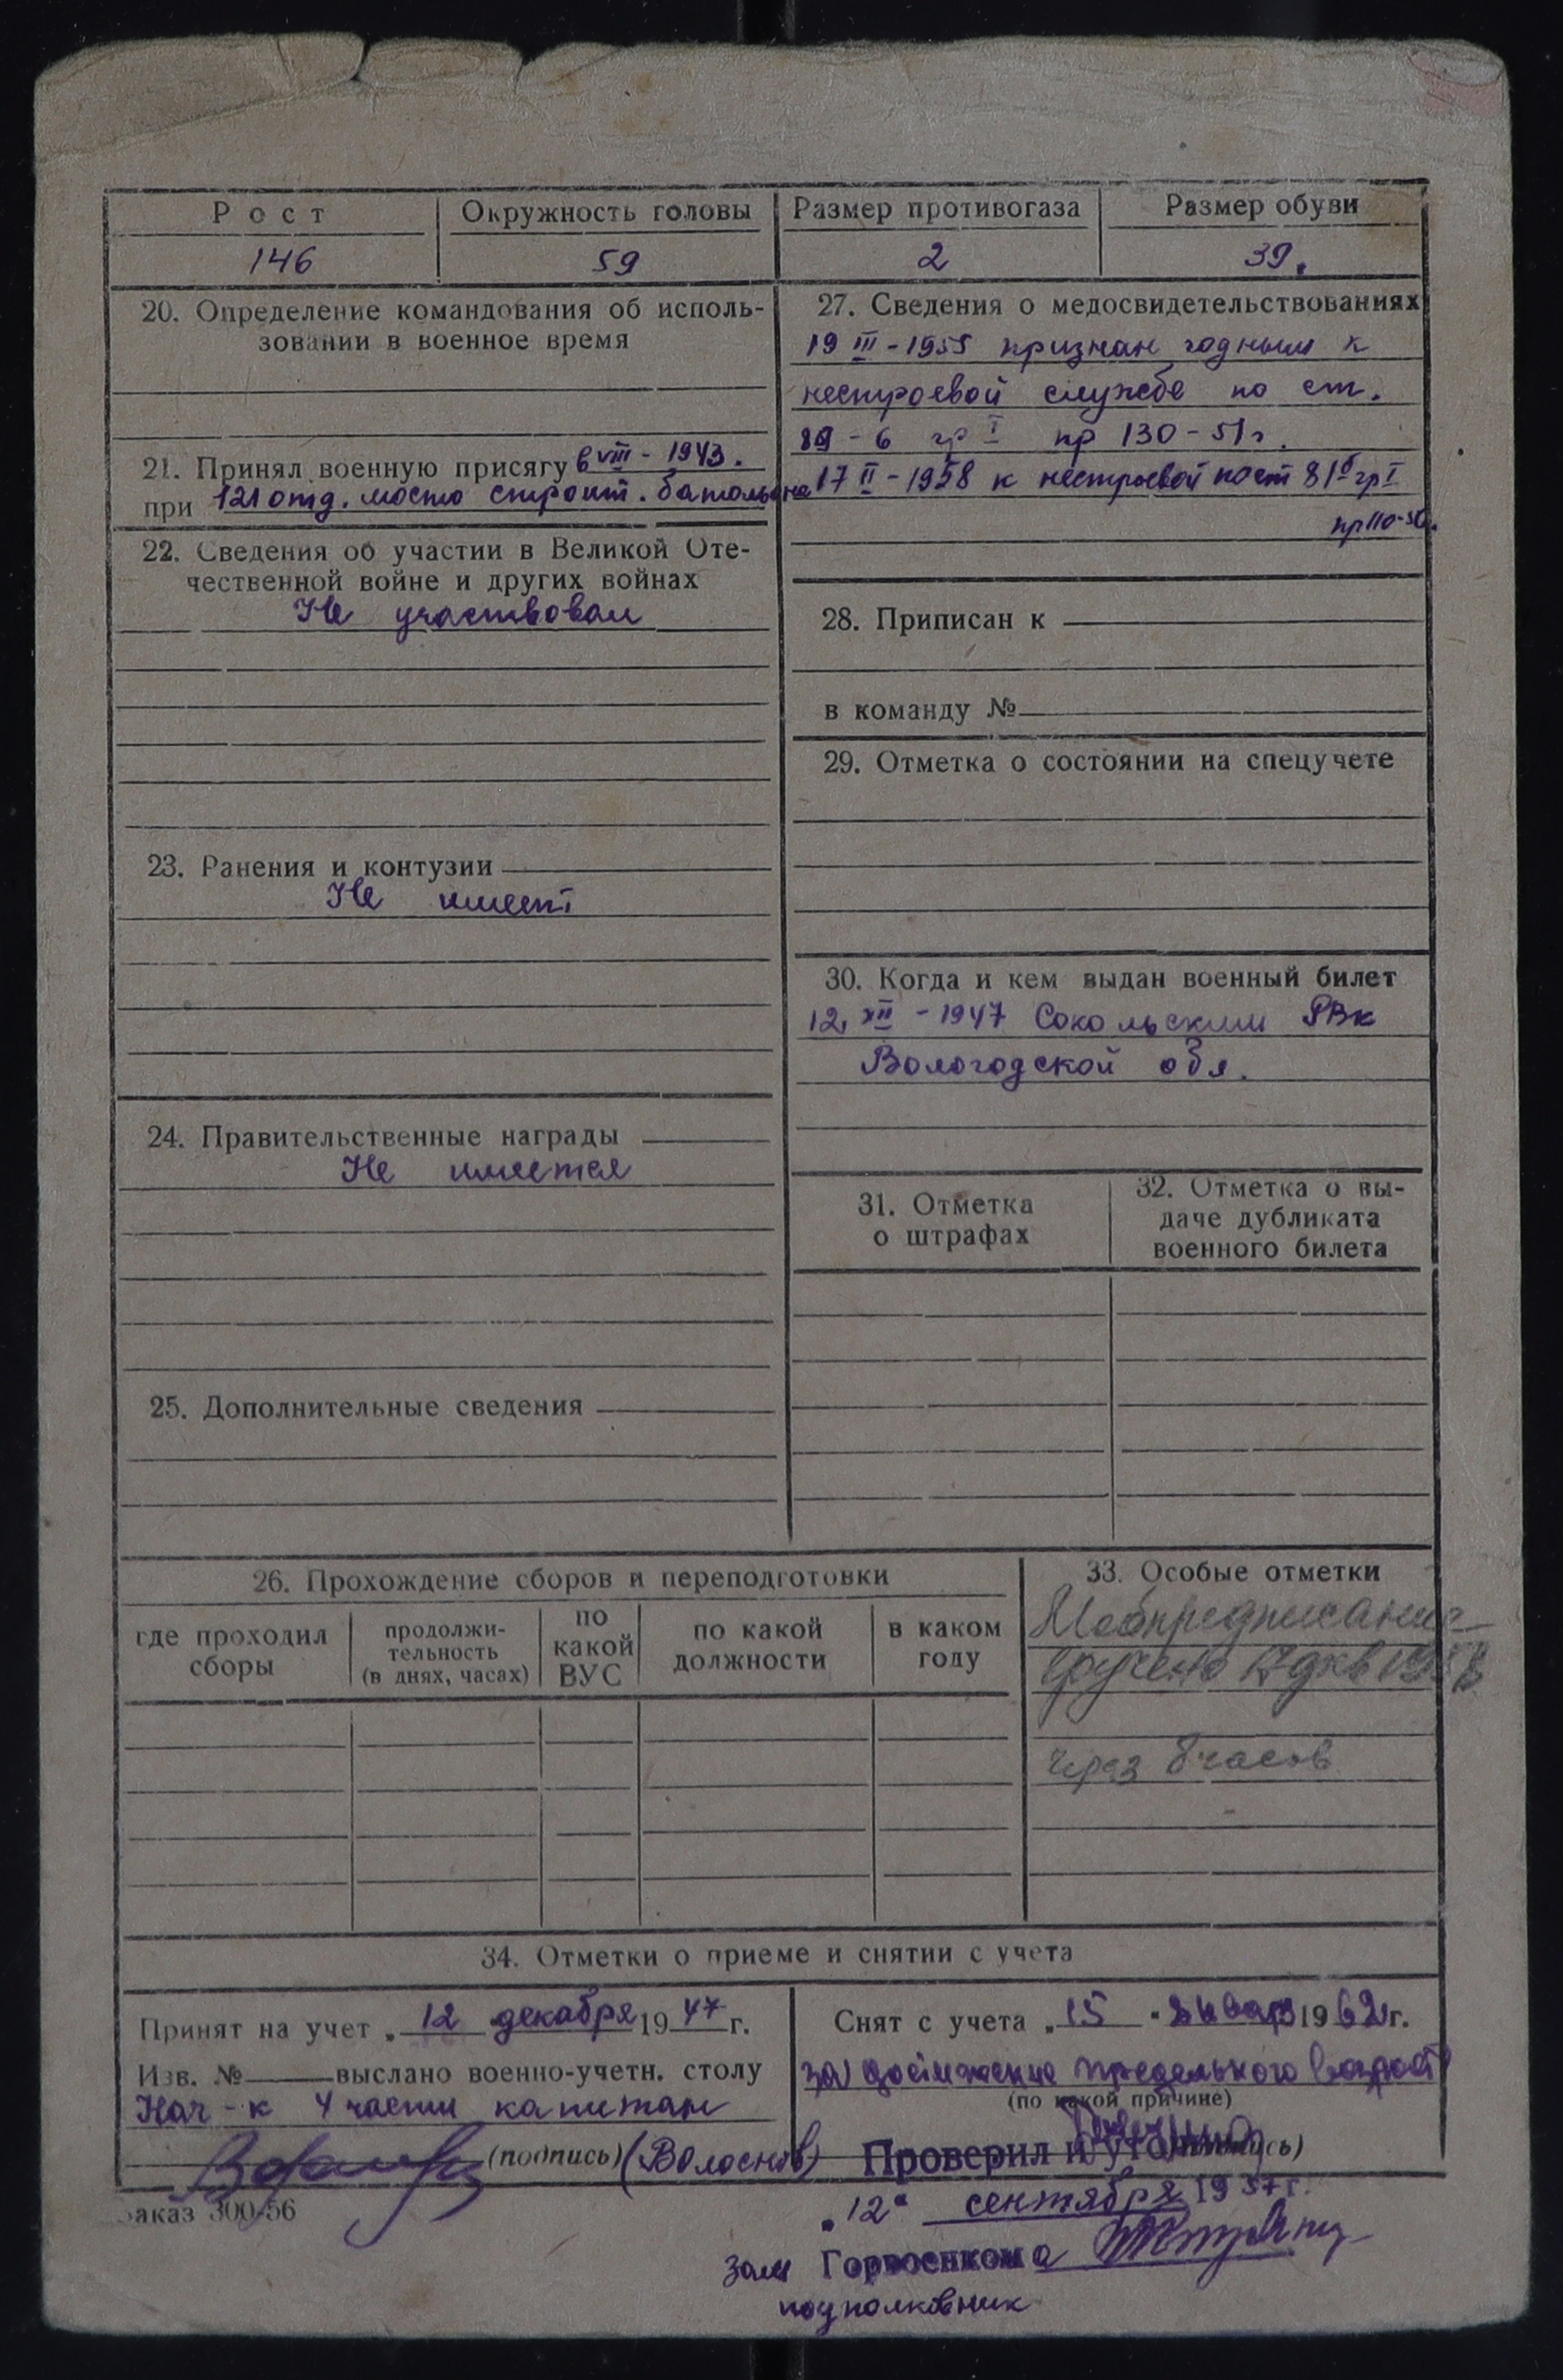 Рост
Окружность головы
Размер противогаза
Размер обуви
146
59
2
39.
20. Определение командования об исполь-
зовании в военное время
21. Принял военную присягу 6 VIII - 1943.
при 121 отд. мосто строит. батальона
22. Сведения об участии в Великой Оте-
чественной войне и других войнах
Не участвовал
23. Ранения и контузии
Не имеет
24. Правительственные награды
Не имеется
25. Дополнительные сведения
27. Сведения о медосвидетельствованиях
19 III - 1955 признан годным к
нестроевой службе по ст.
89 - б гр I пр 130 - 51 г.
17 II - 1958 к нестроевой по ст 81б гр I
пр 110-
28. Приписан к
в команду №
29. Отметка о состоянии на спецучете
30. Когда и кем выдан военный билет
12 XII - 1947 Сокольским РВк
Вологодской обл.
31. Отметка
о штрафах
32. Отметка о вы-
даче дубликата
военного билета
26. Прохождение сборов и переподготовки
где проходил
сборы
продолжи-
тельность
(в днях, часах)
по
какой
ВУС
по какой
должности
в каком
году
33. Особые отметки
Мобпредписание
вручено
через 8 часов
34. Отметки о приеме и снятии с учета
Принят на учет „ 12 декабря 19 47 г.
Изв. № выслано военно-учетн. столу
Нач-к 4 части капитан
(подпись) (Волоснов)
Снят с учета „ 15 " января 19 62 г.
за достижение предельного возраст
(по какой причине)
Проверил и
„12" сентября 1957 г.
зам Горвоенкома
подполковник
Заказ 300-56